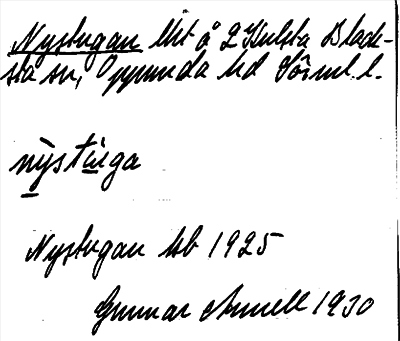 Nystugan lht å 2 Kulsta Black-
sta sn, Oppunda hd Sörml. l.
nỳstùga
Nystugan hb 1925
Gunnar Annell 1930